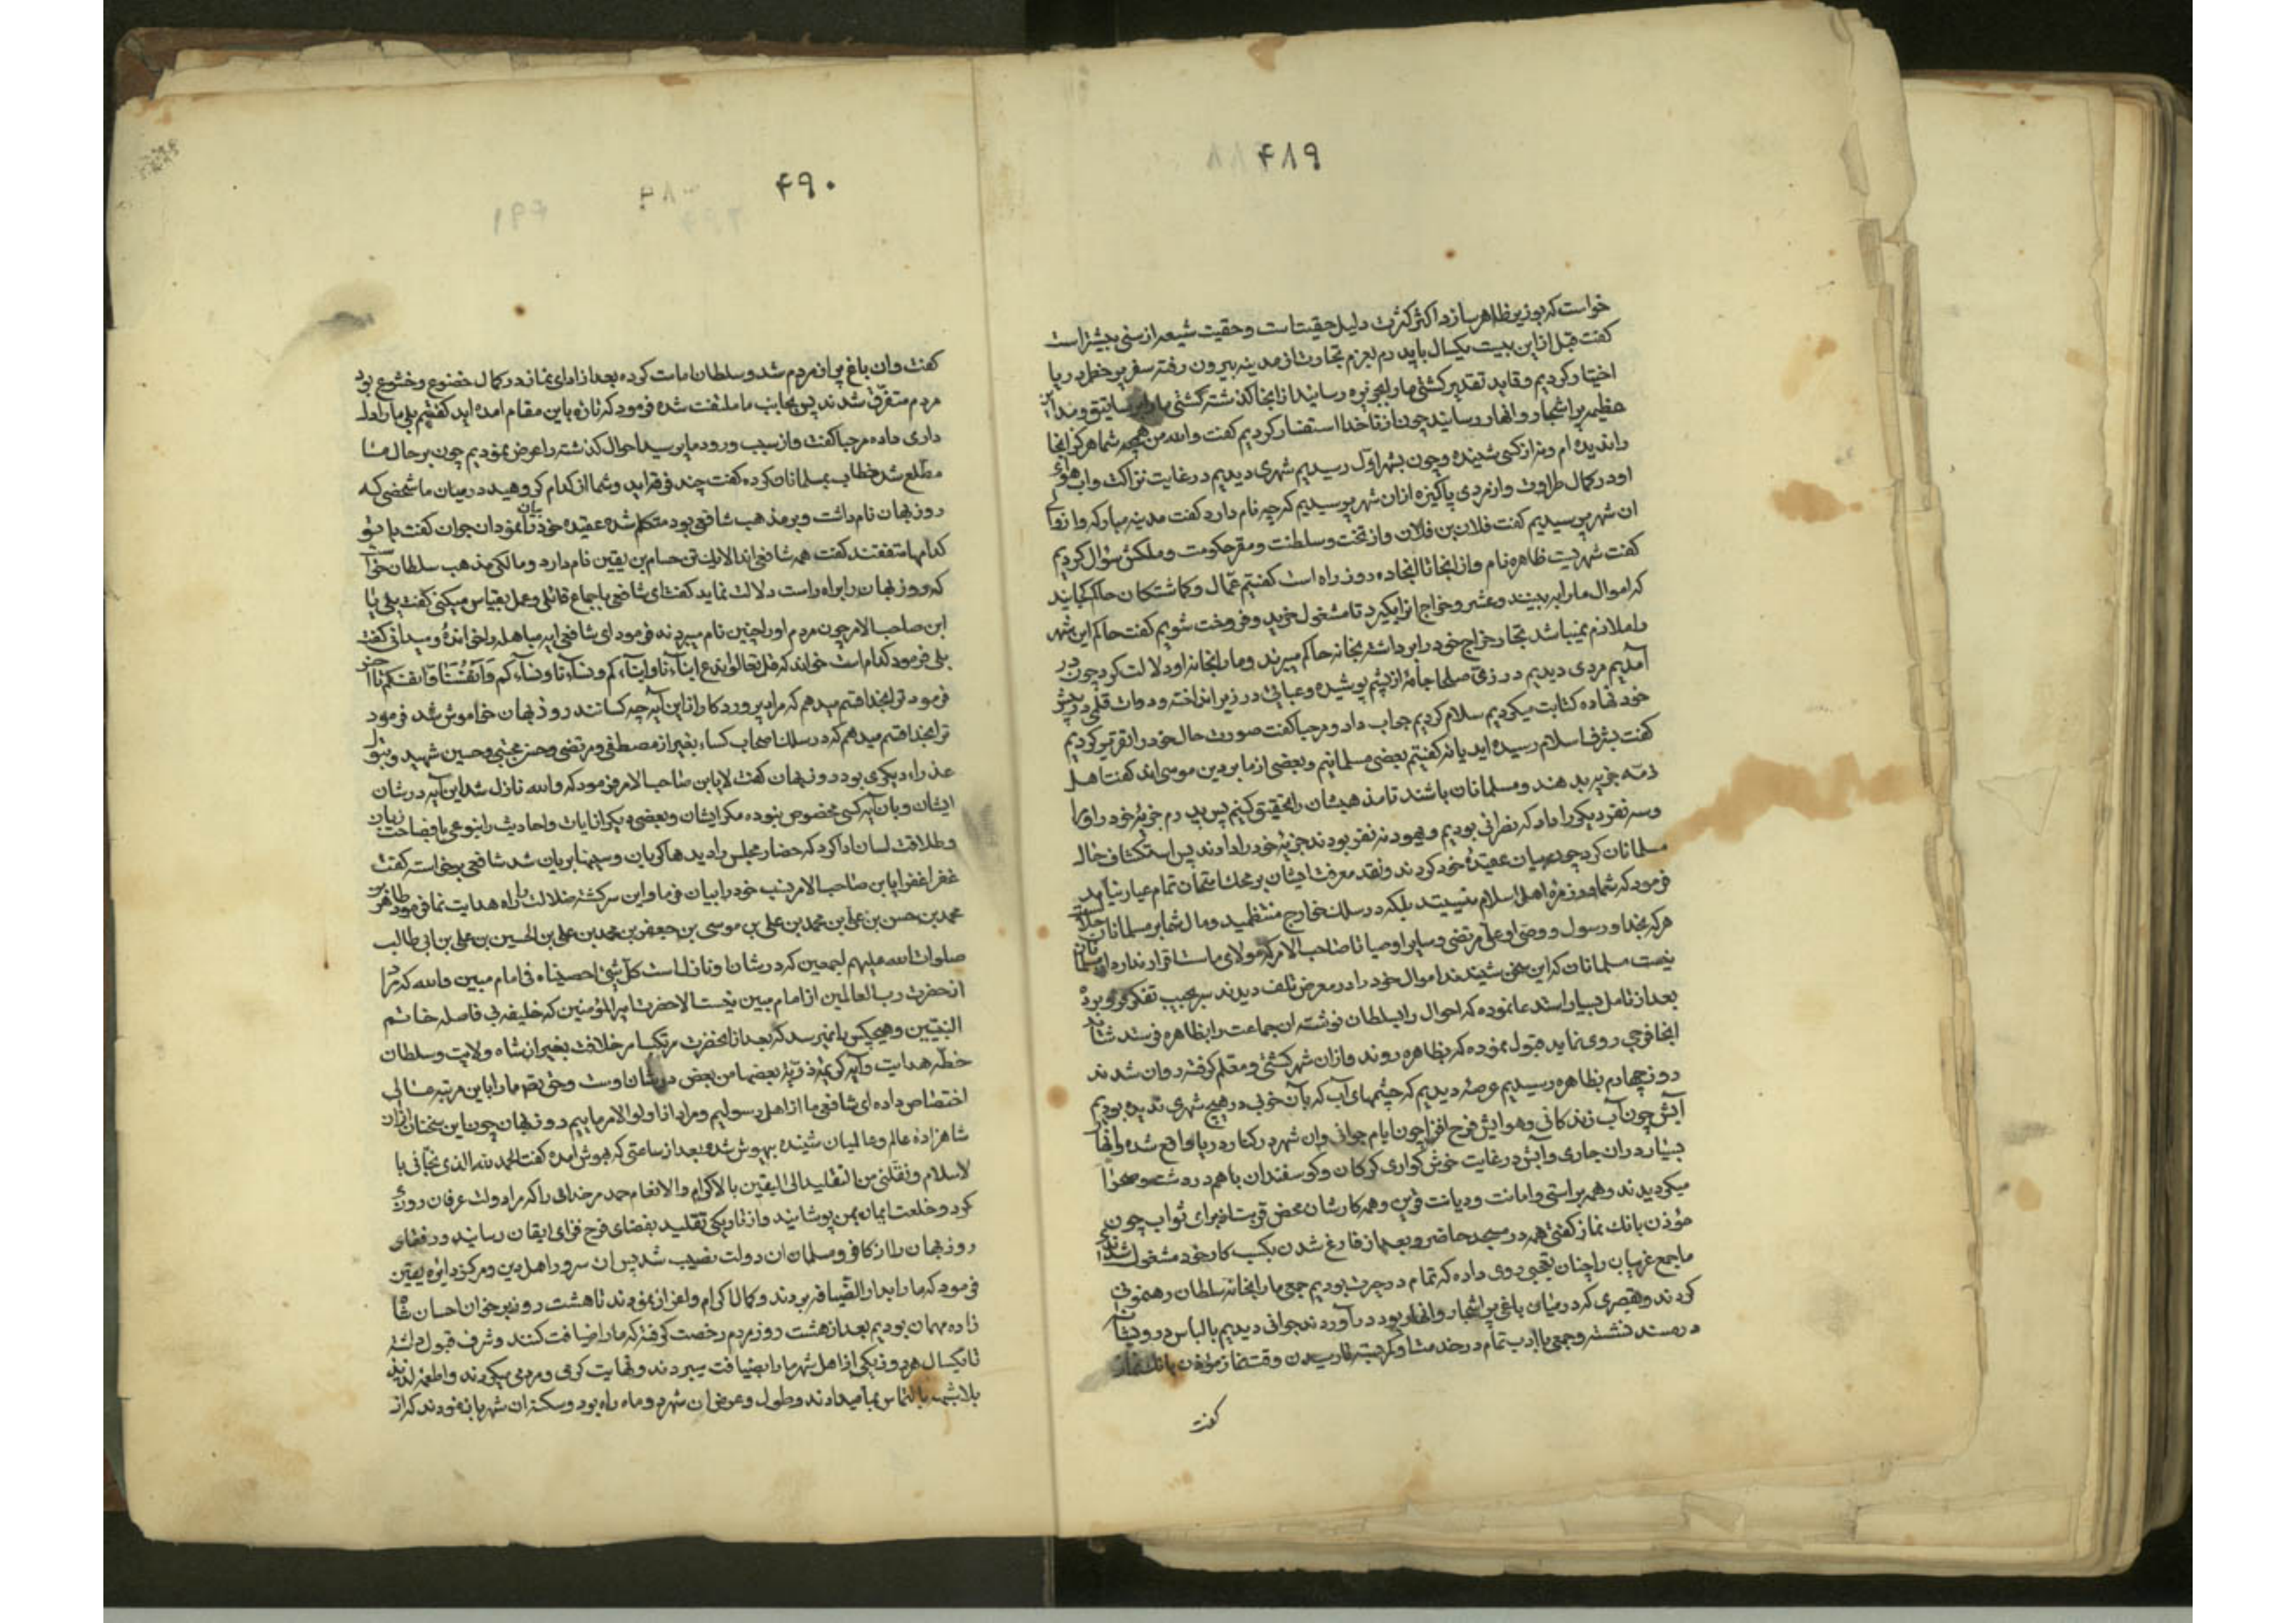 ۴۸۹
خواست که بوزیر ظاهر سازد اکثر کثرت دلیل حقیت است و حقیت شیعه از سنی بیشتر است
کفت قبل از این بیست یکسال باپدرم بعزم تجارت از مدینه بیرون رفته سفر پر خطر دریا
اختیار کردیم و قاید تقدیر کشتی ما را بجزیره رسانید از انجا کذشته کشتی ما را و مداین
عظیمه پر اشجار و انهار رسانید چون از ناخدا استفسار کردیم کفت والله من همچه شما هرکز اینجا
را ندیده ام و نه از کسی شنیده و چون بشهر اول رسیدیم شهری دیدیم در غایت نزاکت و اب هوای
او در کمال طراوت و از مردی پاکیزه از ان شهر پرسیدیم که چه نام دارد کفت مدینه مبارکه و از والی
ان شهر پرسیدیم کفت فلان بن فلان و از تخت و سلطنت و مقر حکومت و ملکش سؤال کردیم
کفت شهریست ظاهره نام و از اینجا تا انجا ده روز راه است کفتیم عمال و کماشتکان حاکم کجایند
که اموال ما را به بینند و عشر و خراج انرا بکیرد تا مشغول خرید و فروخت شویم کفت حاکم این شهر
را ملازم نمیباشد تجار خراج خود را برداشته بخانه حاکم میبرند و ما را بخانه او دلالت کرد چون در
آمدیم مردی دیدیم در زی صلحا جامۀ از پشم پوشیده و عبائی در زیر انداخته و دوات قلمی در پیش
خود نهاده کتابت میکردیم سلام کردیم جواب داد و مرحبا کفت صورت حال خود را تقریر کردیم
کفت بشرف اسلام رسیده اید یا نه کفتیم بعضی مسلمانیم و بعضی از ما بر دین موسی اند کفت اهل
ذمه جزیه بدهند و مسلمانان باشند تا مذهبشان را تحقیق کنیم پس پدرم جزیۀ خود را و از
و سه نفر دیکر را داد که نصرانی بودیم و یهود نه نفر بودند جزیۀ خود را دادند پس استکشاف حال
مسلمانان کرد چون بیان عقیدۀ خود کردند و نقد معرفت ایشان بر محک امتحان تمام عیار نیامد
فرمود که شما در زمرۀ اهل اسلام نیستید بلکه در سلک خوارج منتظمید و مال شما بر مسلمانان حلال است
هرکه بخدا و رسول و وصی او علی مرتضی و سایر اوصیا تا صاحب الامر که مولای ماست اقرار ندارد از مسلمانان
نیست مسلمانان که این سخن شنیدند اموال خود را در معرض تلف دیدند سر بجیب تفکر فرو برده
بعد از تامل بسیار استدعا نموده که احوال را بسلطان نوشته ان جماعت را بظاهره فرستد شاید
انجا فرجی روی نماید قبول نموده که بظاهره روند و از ان شهر کشتی و معلم کرفته روان شدند
روز چهاردم بظاهره رسیدیم عرصۀ دیدیم که چشمهای آب که بآن خوبی در هیچ شهری ندیده بودیم
آبش چون آب زندکانی و هوایش فرح افزا چون ایام جوانی و ان شهر در کنار دریا واقع شده و انهار
بسیار در ان جاری و آبش در غایت خوش کواری کرکان و کوسفندان با هم در دشت و صحرا
میکردیدند و همه براستی و امانت و دیانت قرین و همه کارشان محض قربت از برای ثواب چون
مؤذن بانک نماز کفتی همه در مسجد حاضر و بعد از فارغ شدن بکسب کار خود مشغول شدندی
ما جمع غریبان را چنان تعجبی روی داده که تمام در حیرت بودیم جمعی ما را بخانه سلطان رهنمونی
کردند و بقصری که در میان باغی پر اشجار و انهار بود در آوردند جوانی دیدیم با لباس درویشان
در مسند نشسته و جمعی با ادب تمام در خدمتش وقت نماز مؤذن بانک نماز
کفت
۴۹۰
کفت و ان باغ پر از مردم شد و سلطان امامت کرده بعد از ادای نماز در کمال خضوع و خشوع بود
مردم متفرق شدند پس بجانب ما ملتفت شده فرمود که تازه باین مقام امده اید کفتیم بلی ما را دلـ
داری داده مرحبا کفت و از سبب ورود ما پرسید احوال کذشته را عرض نمودیم چون بر حال ما
مطلع شد خطاب بمسلمانان کرده کفت چند فرقه اید و شما از کدام کروهید در میان ما شخصی که
روزبهان نام داشت و بر مذهب شافعی بود متکلم شده عقیده خود بیان نمود ان جوان کفت با تو
کدامها متفقند کفت همه شافعی اند الا یک تن حسام بن یقین نام دارد و مالکی مذهب سلطان خواست
که روزبهان را براه راست دلالت نماید کفت ای شافعی باجماع قائلی و عمل بقیاس میکنی کفت بلی یا
ابن صاحب الامر چون مردم او را چنین نام میبردند فرمود ای شافعی ایه مباهله را خواندۀ و میدانی کفت
بلی فرمود کدام است خواند که قل تعالوا ندع ابناءنا و ابناءکم و نساءنا و نساءکم و انفسنا و انفسکم تا آخر
فرمود ترا بخدا قسم میدهم که مراد پروردکار از این آیه چه کسانند روزبهان خاموش شد فرمود
ترا بخدا قسم میدهم که در سلک اصحاب کساء بغیر از مصطفی و مرتضی و حسن مجتبی و حسین شهید و بتول
عذراء دیکری بود روزبهان کفت لا یابن صاحب الامر فرمود که والله نازل شد این آیه در شان
ایشان و بان آیه کسی مخصوص نبوده مکر ایشان و بعضی دیکر از ایات و احادیث را بنوعی با فصاحت زبان
و طلاقت لسان ادا کرد که حضار مجلس را دیده ها کریان و سینها بریان شد شافعی برخاست کفت
غفرا غفرا یابن صاحب الامر نسب خود را بیان فرما و این سرکشته ضلالت را براه هدایت نما فرمود طاهر بن
محمد بن حسن بن علی بن محمد بن علی بن موسی بن جعفر بن محمد بن علی بن الحسین بن علی بن ابی طالب
صلوات الله علیهم اجمعین که در شان او نازلست کل شئ احصیناه فی امام مبین والله که مراد
از حضرت رب العالمین از امام مبین نیست الا حضرت امیر المؤمنین که خلیفه بی فاصله خاتم
النبیین و هیچکس را نمیرسد که بعد از انحضرت مرتکب امر خلافت بغیر از شاه ولایت و سلطان
خطۀ هدایت و آیه کریمه ذریة بعضها من بعض در شان اوست و حق تعالی ما را باین مرتبه عالی
اختصاص داده ای شافعی ما از اهل رسولیم و مراد از اولو الامر ماییم روزبهان چون این سخنان از ان
شاهزاده عالم و عالمیان شنیده بیهوش شده بعد از ساعتی که بهوش آمده کفت الحمد لله الذی نجانی با
لاسلام و نقلنی من التقلید الی الیقین بالاکرام و الانعام حمد مر خدائی را که مرا دولت عرفان روزی
کرد و خلعت ایمان بمن پوشانید و از تاریکی تقلید بفضای فرح فزای ایقان رسانید و رفقای
روزبهان را از کافر و مسلمان ان دولت نصیب شد پس ان سرور اهل دین و مرکز دایره یقین
فرمود که ما را بدار الضیافه بردند و کمال اکرام و اعزاز نمودند تا هشت روز بر خوان احسان شاه
زاده مهمان بودیم بعد از هشت روز مردم رخصت کرفته که ما را ضیافت کنند و شرف قبول داشته
تا یکسال هر روز یکی از اهل شهر ما را بضیافت میبردند و نهایت کرمی و مردمی میکردند و اطعمه لذیذ
بما میدادند و طول و عرض ان شهر دو ماه راه بود و سکنه ان شهر بما نمودند که از